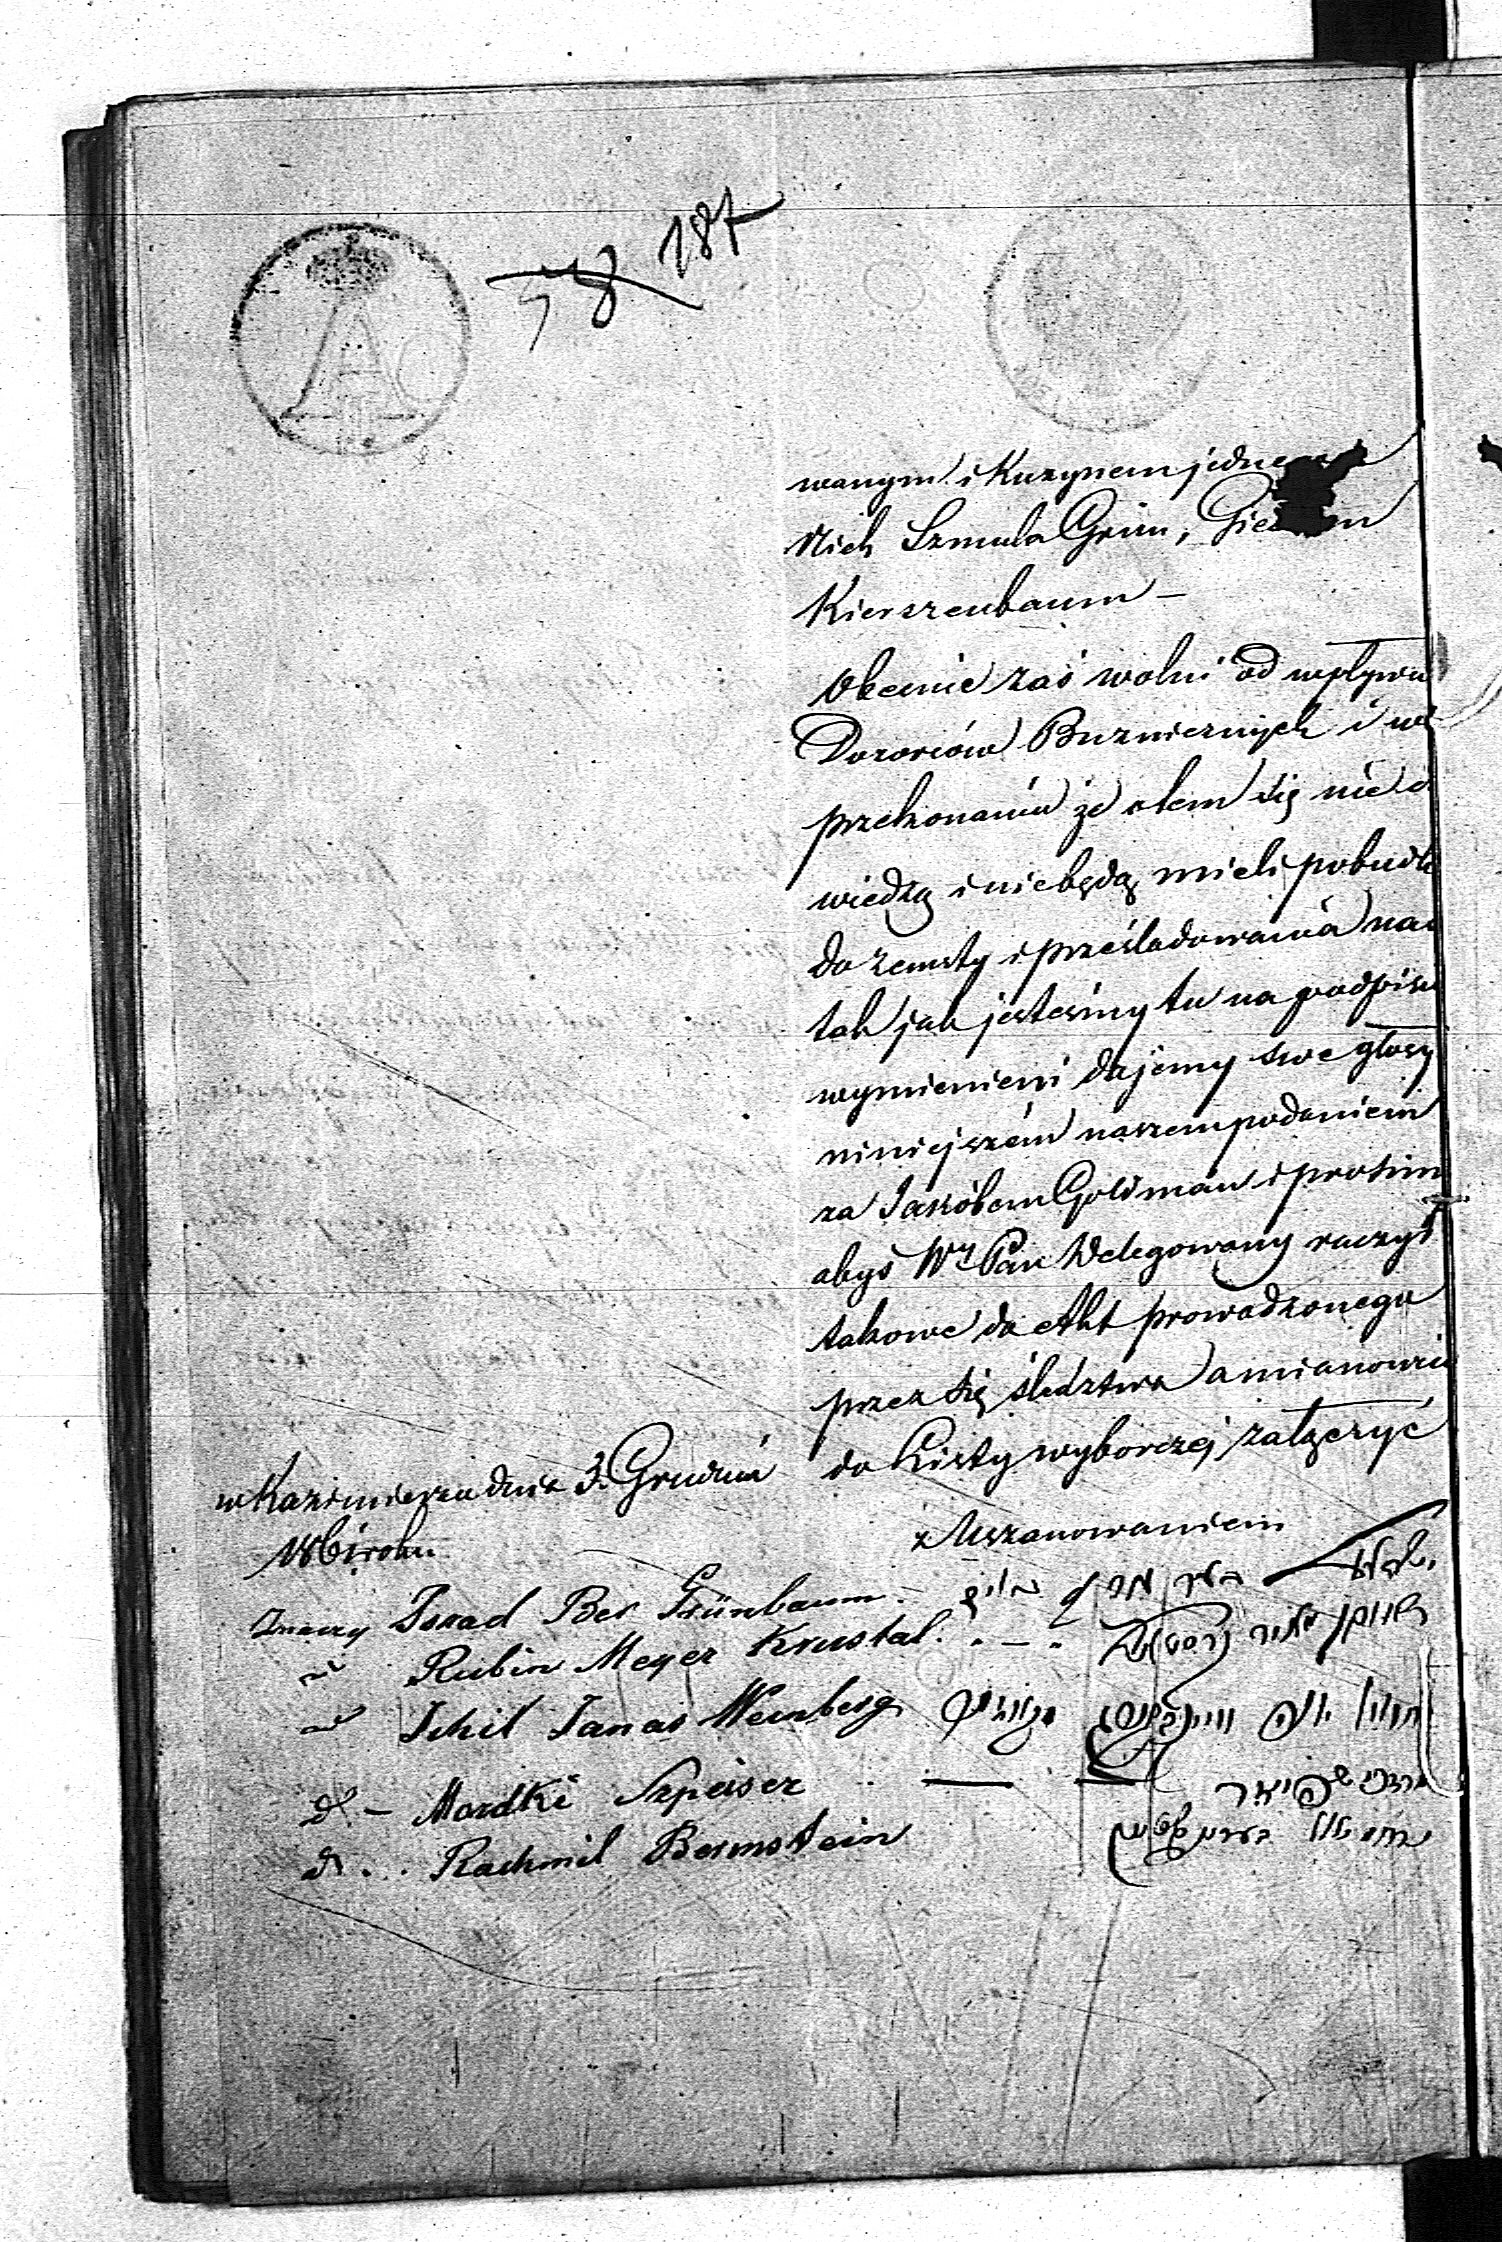 187
58
wanym i Kuzynem jedne
Nich Szmula Grün,
Kierszenbaum –
Obecnie zaś wolni od wpływu
Dozorców Buzniczných i w
przekonaniu że otem się nie d
wiedzą i niebędą mieli pobudk
do zemsty i prześladowania nas
tak jak jesteśmy tu na podpisu
wymienieni dajemy swe głosy
niniejszém naszem podaniem
za Jakóbem Goldman i prosim
abyś Wy Pan Delegowany raczył
takowe do Akt prowadzonego
przez się śledztwa a mianowicie
do Listy wyborczej załączyć
w Kazimierzu dnia 3 Grudnia
1861 roku
z Uszanowaniem
Znaczy Israel Ber Grünbaum
Rubin Meyer Krustal ראובן מאיר קרסטאל
Ichil Janas Weinberg יחיאל יונה וויינבערג
d. – Mordki Szpeiser מרדכי שפייזר
d... Rachmil Bernstein ירחמיאל בערענשטיין